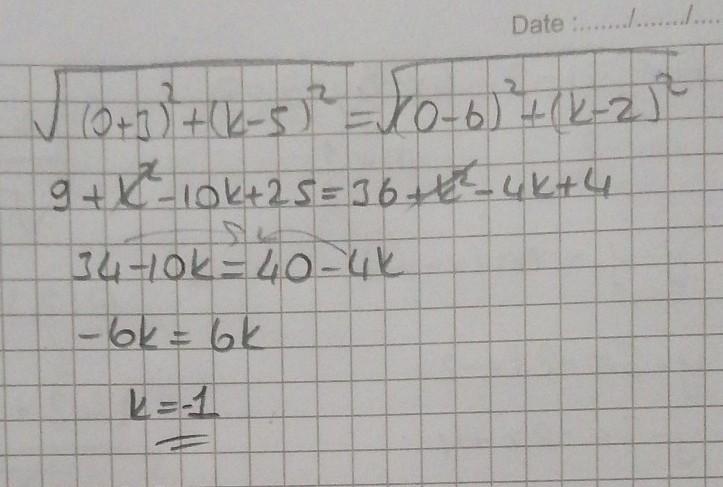 Date :......./......./....
√(0+3)² + (k-5)² = √(0-6)² + (k-2)²
9 + k² - 10k + 25 = 36 + k² - 4k + 4
34 - 10k = 40 - 4k
-6k = 6k
k = -1